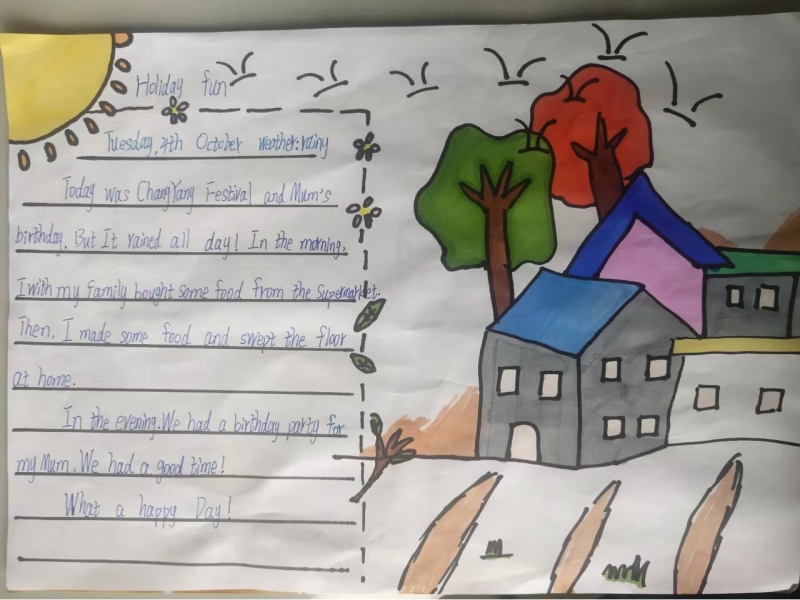 Holiday fun
Tuesday, 4th October weather: rainy
Today was ChangYang Festival and Mum's
birthday. But It rained all day! In the morning,
I with my family bought some food from the supermarket.
Then, I made some food and swept the floor
at home.
In the evening. We had a birthday party for
my Mum. We had a good time!
What a happy Day!